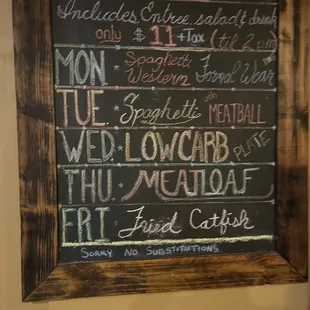 Includes Entree, salad & drink
only $11 +Tax (til 2pm)
MON. Spaghetti Western Formal Wear
TUE. Spaghetti MEATBALL
WED. LOWCARB PLATE
THU. MEATLOAF
FRI. Fried Catfish
SORRY NO SUBSTITUTIONS